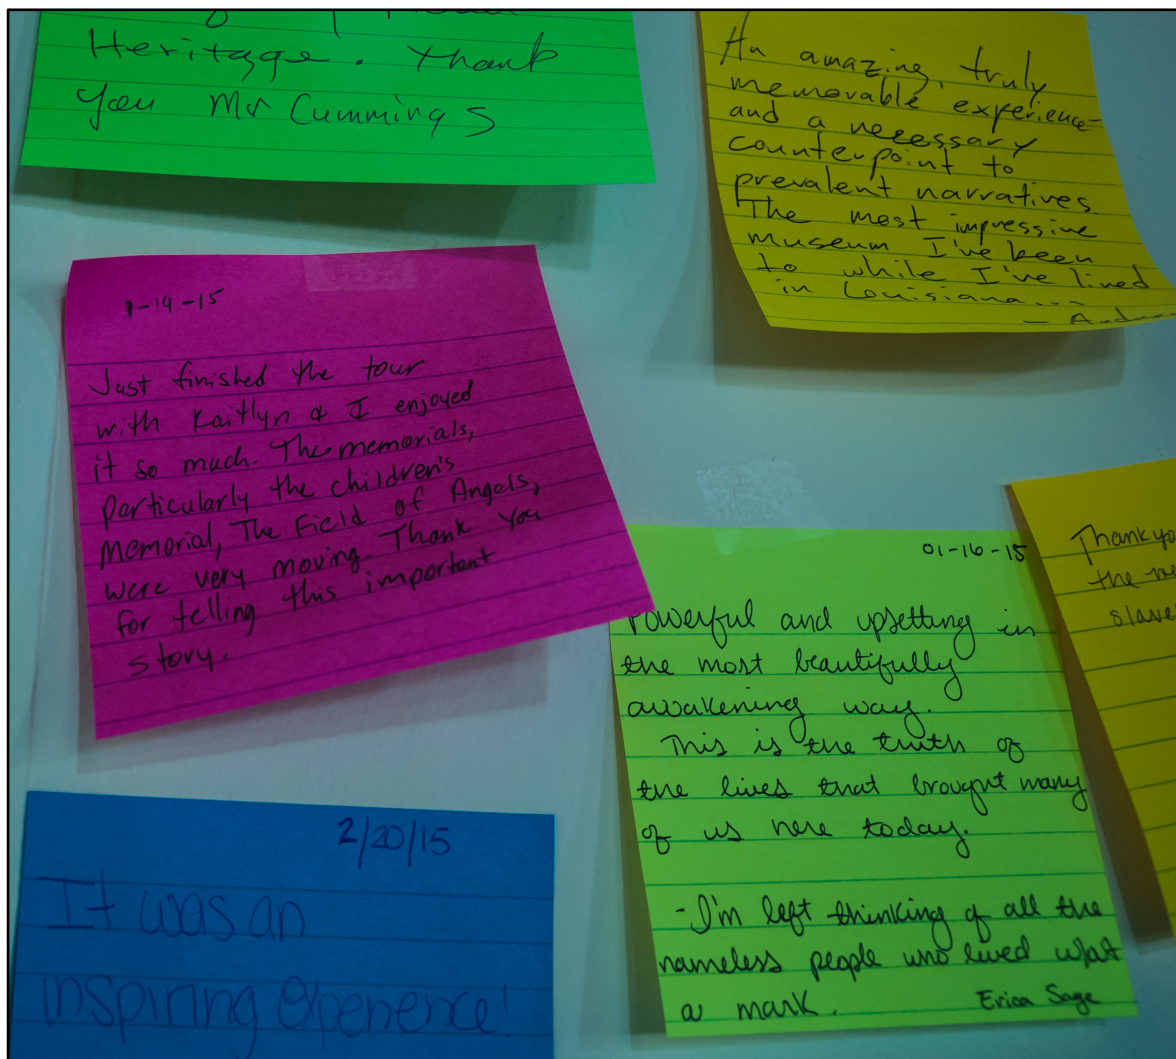 Heritage. Thank
you Mr Cummings
An amazing, truly
memorable experience
and a necessary
counterpoint to
prevalent narratives.
The most impressive
museum I've been
to while I've lived
in Louisiana...
1-19-15
Just finished the tour
with Kaitlyn & I enjoyed
it so much. The memorials,
particularly the children's
Memorial, The Field of Angels,
were very moving. Thank you
for telling this important
story.
01-16-15
Powerful and upsetting in
the most beautifully
awakening way.
This is the truth of
the lives that brought many
of us here today.
-I'm left thinking of all the
nameless people who lived
a mark.
Erica Sage
Thank yo
the
slave
2/20/15
It was an
inspiring experience!